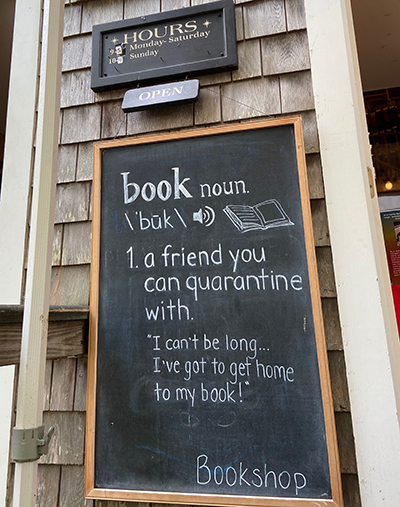 HOURS
Monday-Saturday
Sunday
OPEN
book noun.
\'bük\
1. a friend you
can quarantine
with.
"I can't be long...
I've got to get home
to my book!"
Bookshop